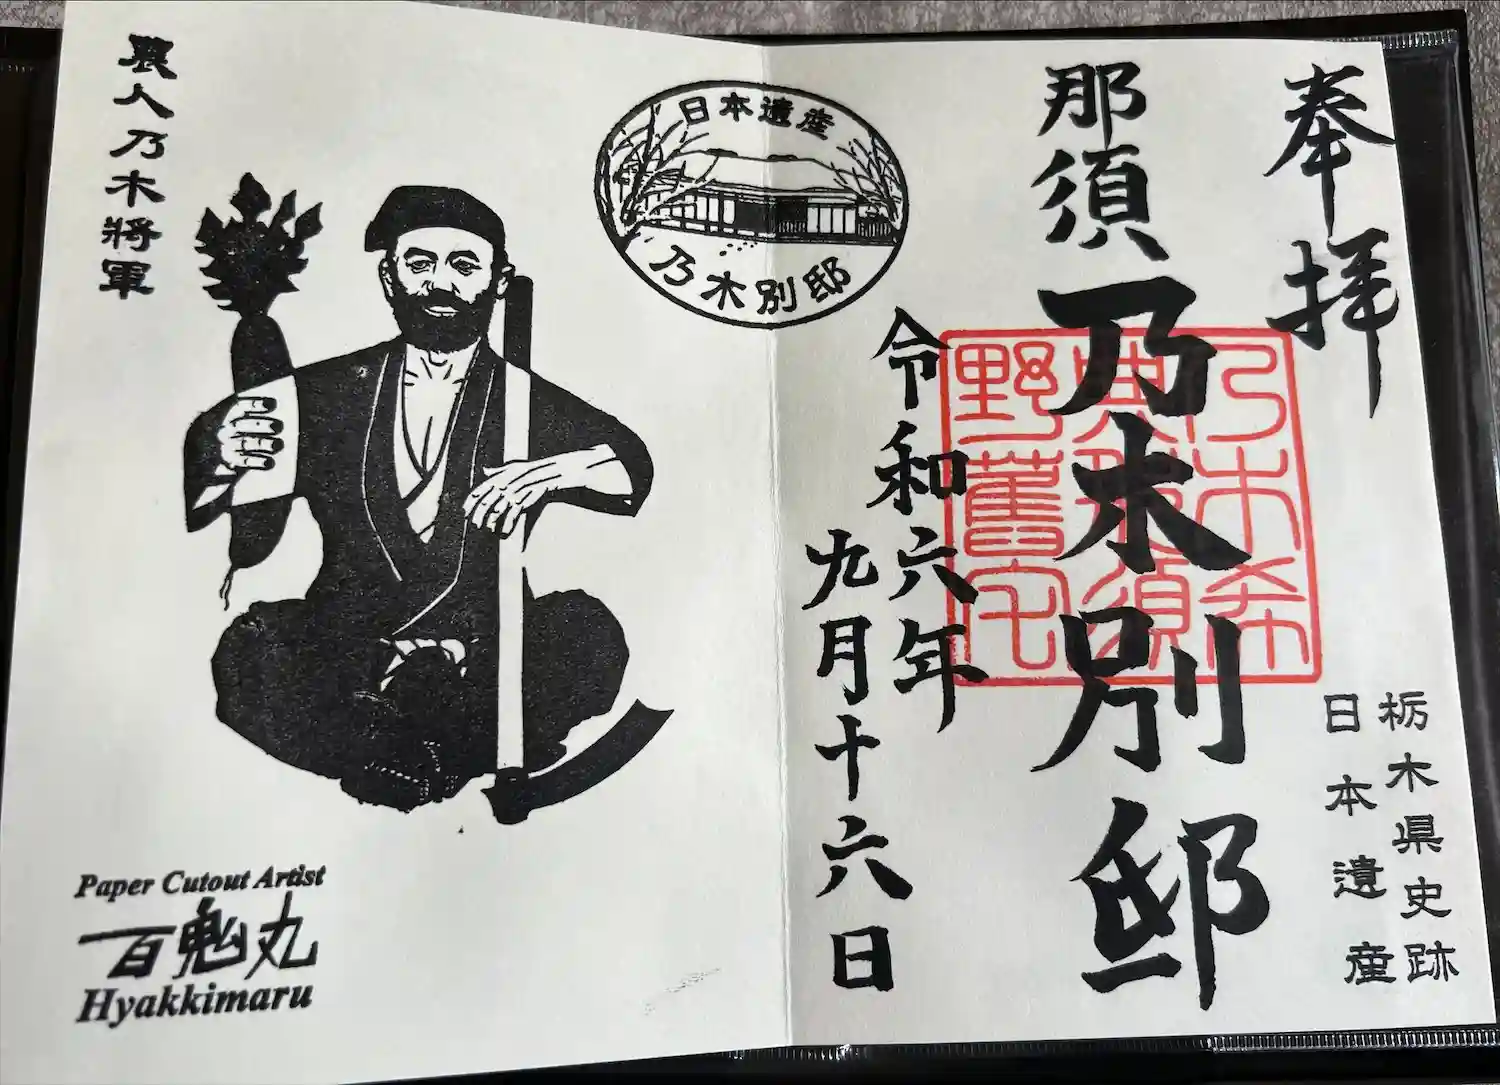 奉拝
那須乃木別邸
乃木希
典那須
野舊宅
令和六年
九月十六日
栃木県史跡
日本遺産
日本遺産
乃木別邸
農人乃木將軍
Paper Cutout Artist
百鬼丸
Hyakkimaru